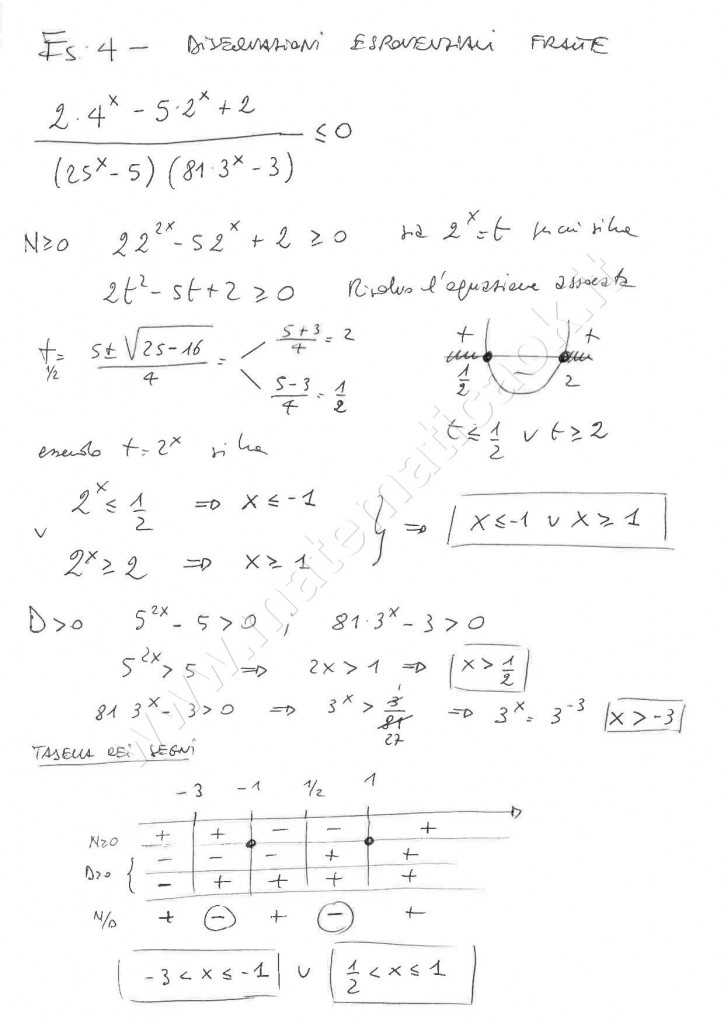 Es. 4 - DISEQUAZIONI ESPONENZIALI FRATTE
2·4^x - 5·2^x + 2
(25^x - 5) (81·3^x - 3)
≤ 0
N≥0 2 2^2x - 5 2^x + 2 ≥ 0 sia 2^x = t per cui si ha
2t² - 5t + 2 ≥ 0 Risolvo l'equazione associata
t 1/2 = 5 ± √25-16 / 4 = 5+3 / 4 = 2
5-3 / 4 = 1/2
+ +
1/2 2
t ≤ 1/2 ∨ t ≥ 2
essendo t = 2^x si ha
2^x ≤ 1/2 ⇒ x ≤ -1
∨
} ⇒ x ≤ -1 ∨ x ≥ 1
2^x ≥ 2 ⇒ x ≥ 1
D>0 5^2x - 5 > 0 , 81·3^x - 3 > 0
5^2x > 5 ⇒ 2x > 1 ⇒ x > 1/2
81 3^x - 3 > 0 ⇒ 3^x > 3/81 1 27 ⇒ 3^x = 3^-3 x > -3
TABELLA DEI SEGNI
-3 -1 1/2 1
N≥0 + + - - +
D>0 { - - - + +
- + + + +
N/D + - + - +
-3 < x ≤ -1 ∨ 1/2 < x ≤ 1
www.matematicaok.it